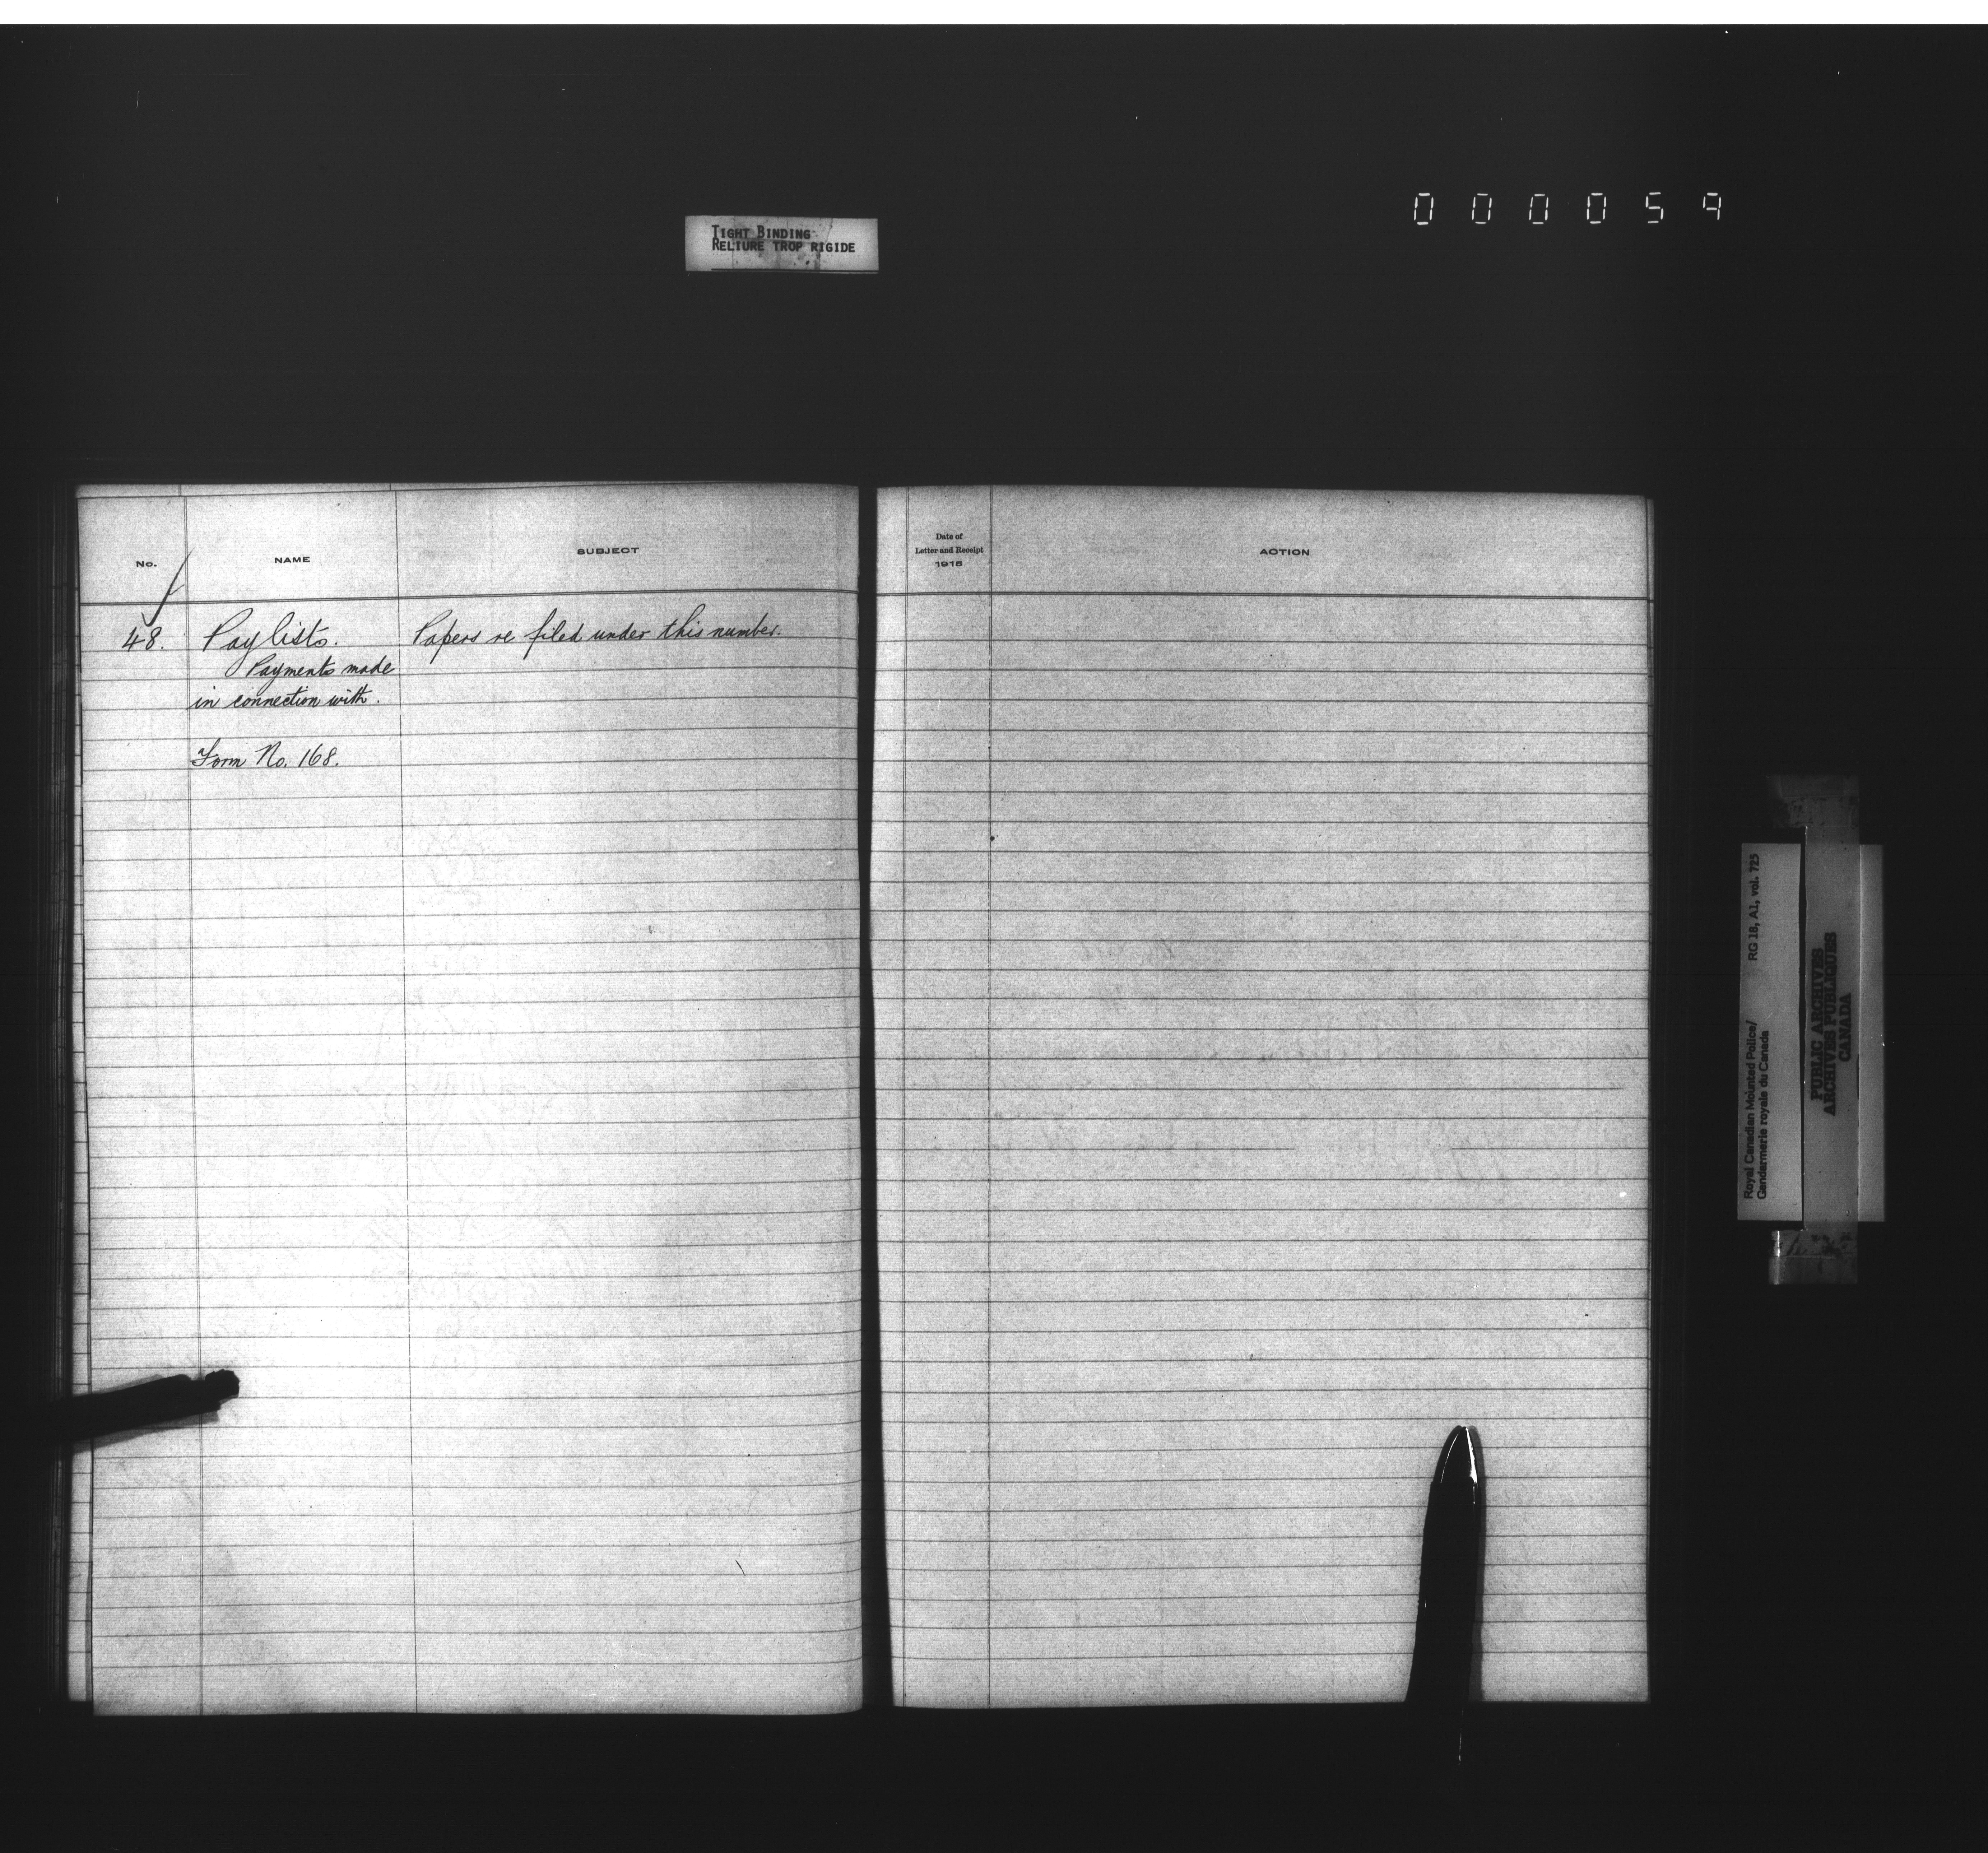 TIGHT BINDING
RELIURE TROP RIGIDE
000059
No.
NAME
SUBJECT
48. Paylists. Papers re filed under this number.
Payments made
in connection with.
Form No. 168.
Date of
Letter and Receipt
1915
ACTION
Royal Canadian Mounted Police/ RG 18, A1, vol. 725
Gendarmerie royale du Canada
PUBLIC ARCHIVES
ARCHIVES PUBLIQUES
CANADA